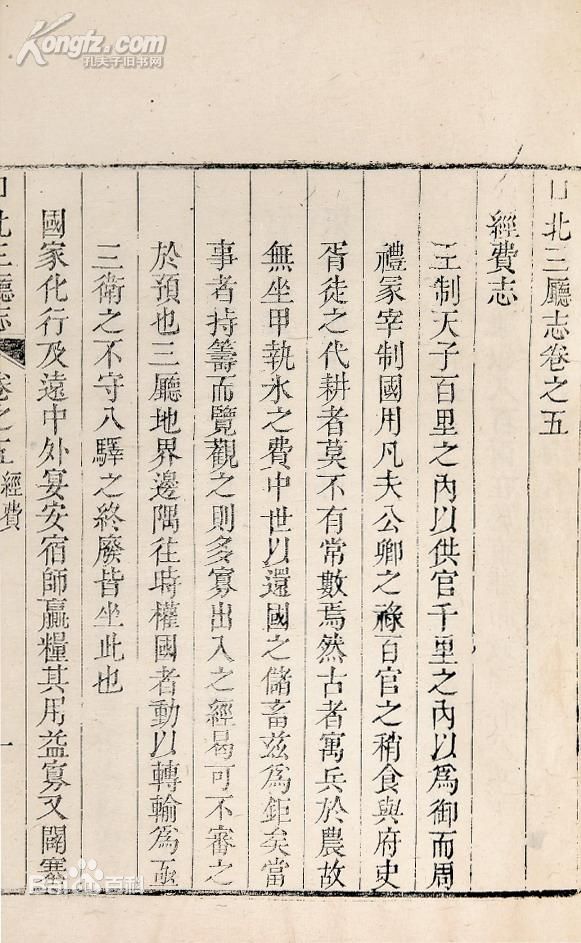 口北三廳志卷之五
經費志
王制天子百里之內以供官千里之內以為御而周
禮冢宰制國用凡夫公卿之祿百官之稍食與府史
胥徒之代耕者莫不有常數焉然古者寓兵於農故
無坐甲執氷之費中世以還國之儲畜茲為鉅矣當
事者持籌而覽觀之則多寡出入之經曷可不審之
於預也三廳地界邊隅往時權國者動以轉輸為亟
三衛之不守入驛之終廢皆坐此也
國家化行及遠中外宴安宿師贏糧其用益寡又閞塞
口北三廳志 卷之五 經費 一
Kongfz.com
孔夫子旧书网
Bai百科